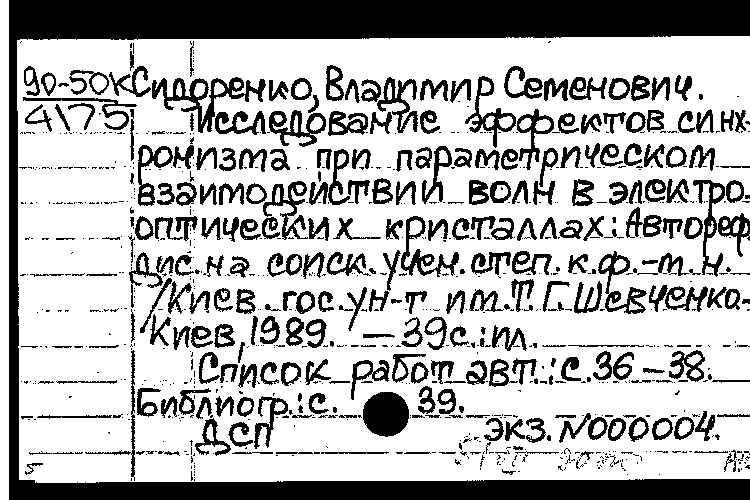 90-50К Сидоренко, Владимир Семенович.
4175 Исследование эффектов синх-
ронизма при параметрическом
взаимодействии волн в электро-
оптических кристаллах: Автореф.
дис. на соиск. учен. степ. к.ф.-м.н.
/Киев. гос. ун-т им. Т. Г. Шевченко.-
Киев, 1989. — 39 с.: ил.
Список работ авт.: с. 36 – 38.
Библиогр.: с. 39.
ДСП экз. N000004.
5